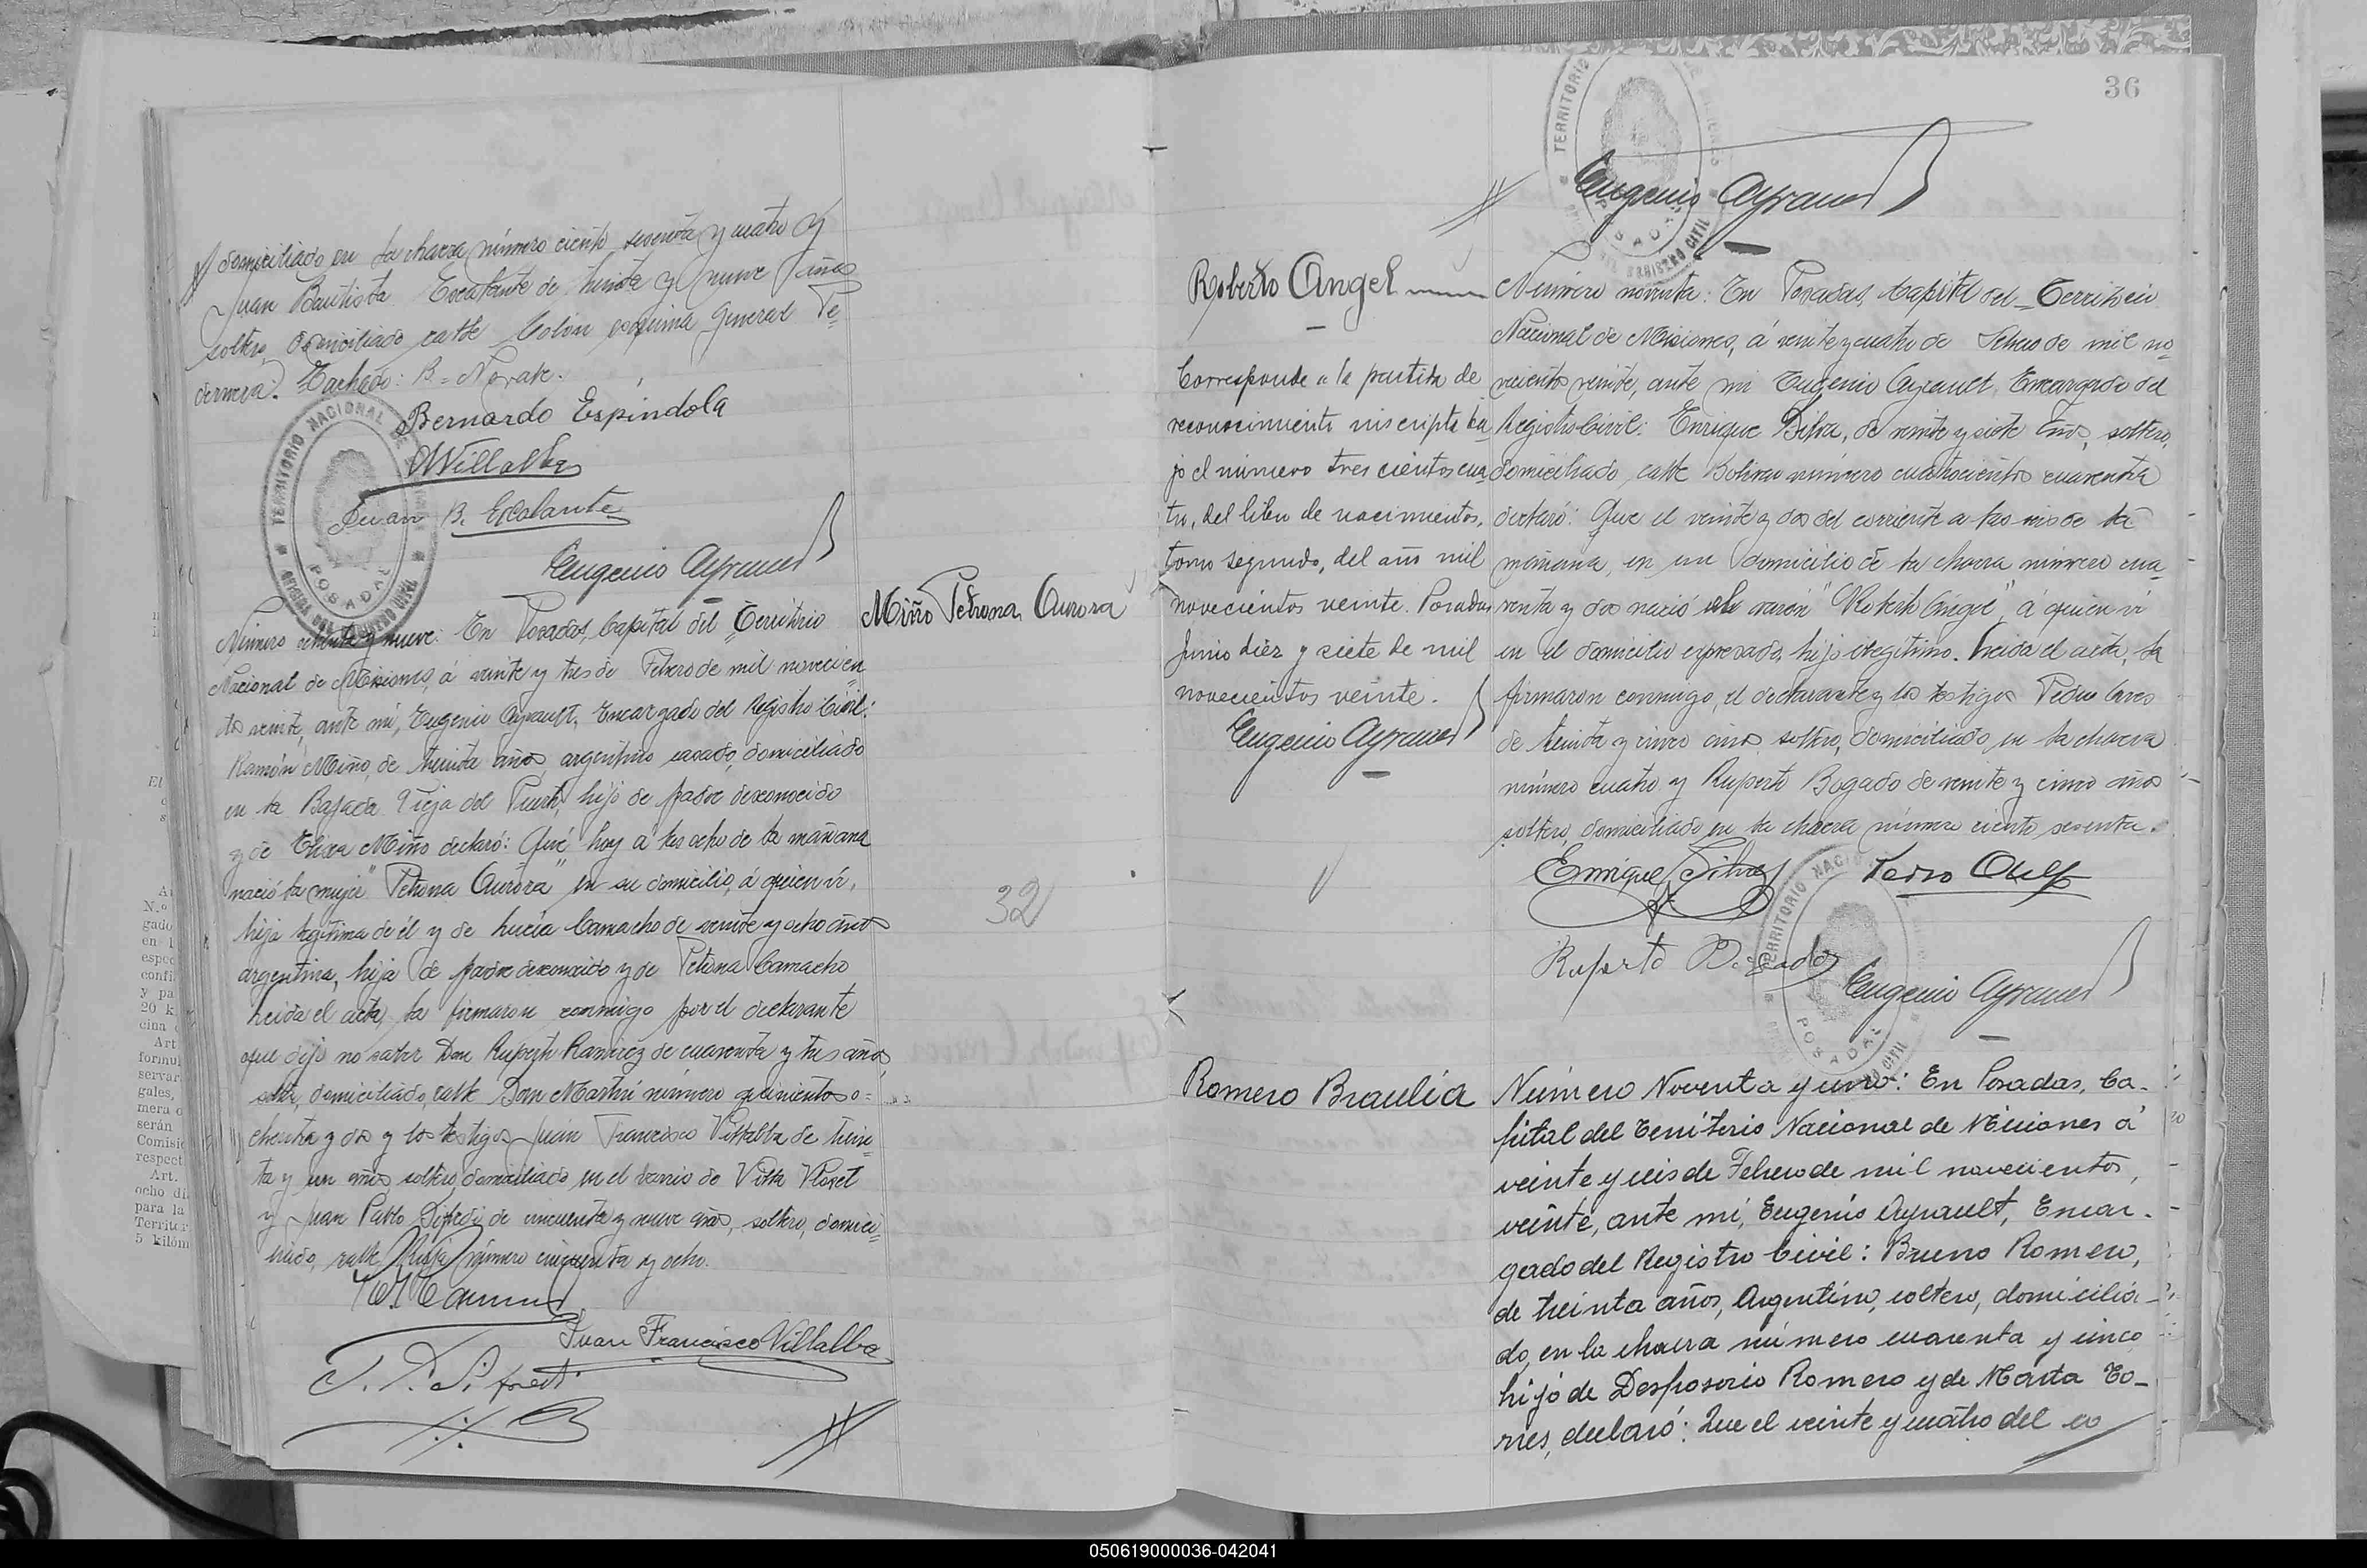 domiciliado en la chacra número ciento sesenta y cuatro y
Juan Bautista Escalante de treinta y nueve años
soltero, domiciliado calle Colón esquina General Pe=
dernera. Tachado: B = No vale.
Bernardo Espíndola
Villalba
Juan B. Escalante
Eugenio Ayrault
TERRITORIO NACIONAL DE
POSADAS
Miño Petrona Aurora
Número ochenta y nueve: En Posadas, Capital del Territorio
Nacional de Misiones, á veinte y tres de Febrero de mil novecien=
tos veinte, ante mí, Eugenio Ayrault, Encargado del Registro Civil:
Ramón Miño, de treinta años, argentino casado, domiciliado
en la Bajada Vieja del Puerto, hijo de padre desconocido
y de Elisa Miño declaró: Qué hoy á las ocho de la mañana
nació la mujer "Petrona Aurora" en su domicilio, á quien ví,
hija legítima de él y de Lucía Camacho de veinte y ocho años
argentina, hija de padre desconocido y de Petrona Camacho
Leida el acta, la firmaron conmigo por el declarante
que dijo no saber Don Ruperto Ramírez de cuarenta y tres años,
soltero, domiciliado, calle San Martín número quinientos o=
chenta y dos y los testigos Juan Francisco Villalba de trein=
ta y un años soltero, domiciliado en el barrio de Villa
y Juan Pablo de cincuenta y nueve años, soltero, domici=
liado, calle Rioja número cincuenta y ocho.
Juan Francisco Villalba
32
36
Eugenio Ayrault
TERRITORIO
REGISTRO CIVIL
Roberto Angel
Corresponde a la partida de
reconocimiento inscripta ba-
jo el número trescientos cua-
tro, del libro de nacimientos,
tomo segundo, del año mil
novecientos veinte. Posadas
Junio diez y siete de mil
novecientos veinte.
Eugenio Ayrault
Número noventa: En Posadas, Capital del Territorio
Nacional de Misiones, á veinte y cuatro de Febrero de mil no=
vecientos veinte, ante mí Eugenio Ayrault, Encargado del
Registro Civil: Enrique Silva, de veinte y siete años, soltero,
domiciliado, calle Bolívar número cuatrocientos cuarenta
declaró: Que el veinte y dos del corriente a las seis de la
mañana, en un domicilio de la chacra número cua=
renta y dos nació el varón "Roberto Angel", á quien ví
en el domicilio expresado, hijo ilegítimo. Leida el acta, la
firmaron conmigo, el declarante y los testigos Pedro
de treinta y cinco años, soltero, domiciliado, en la chacra
número cuatro y Ruperto Bogado de veinte y cinco años
soltero, domiciliado en la chacra número ciento sesenta.
Enrique Silva
Pedro
Ruperto Bogado
Eugenio Ayrault
TERRITORIO NACIONAL
POSADAS
Romero Braulia
Número Noventa y uno: En Posadas, Ca-
pital del Territorio Nacional de Misiones á
veinte y seis de Febrero de mil novecientos,
veinte, ante mí, Eugenio Ayrault, Encar-
gado del Registro Civil: Bruno Romero,
de treinta años, Argentino, soltero, domicilia-
do, en la chacra número cuarenta y cinco
hijo de Desposorio Romero y de Marta To-
rres, declaró: Que el veinte y cuatro del co
050619000036-042041